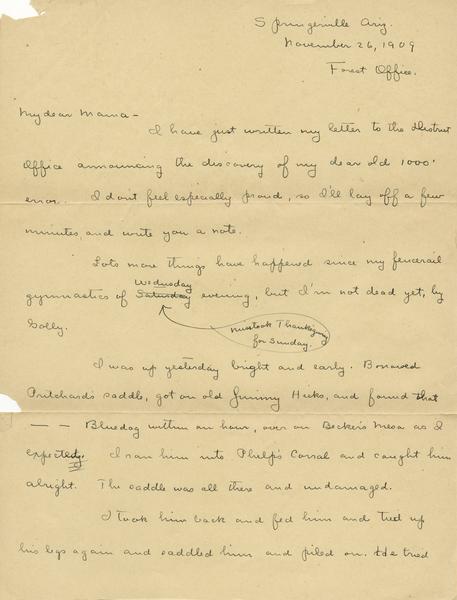 Springerville Ariz.
November 26, 1909
Forest Office.
My dear Mama -
I have just written my letter to the District
Office announcing the discovery of my dear old 1000'
error. I don't feel especially proud, so I'll lay off a few
minutes and write you a note.
Lots more things have happened since my fencerail
Wednesday
gymnastics of Saturday evening, but I'm not dead yet, by
Golly.
mistook Thanksgiving
for Sunday.
I was up yesterday bright and early. Borrowed
Pritchard's saddle, got on old Jimmy Hicks, and found that
— — Bluedog within an hour, over on Becker's Mesa as I
expected. I ran him into Phelp's Corral and caught him
alright. The saddle was all there and undamaged.
I took him back and fed him and tied up
his legs again and saddled him and piled on. He tried